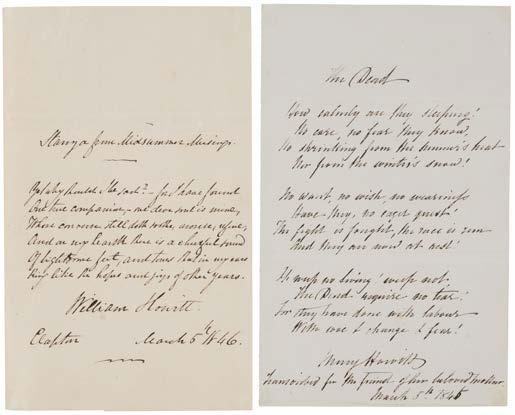 Stanza from Midsummer Musings.
Yet why should I be sad? – for I have found
One true companion, – one dear soul is mine,
Whose converse still doth soothe, 
And on my hearth there is a cheerful sound
Of lightsome feet, and 
Ring like the hopes and joys of other years.
William Howitt.
Clapton March 5th 1846.
The Dead
How calmly are they sleeping!
No care, no fear they know,
No shrinking from the summer's heat
Nor from the winter's snow!
No want, no wish, no weariness
Have they, no eager quest!
The fight is fought, the race is run
And they are now at rest!
Ye weep ye living! weep not
The Dead require no tear!
For they have done with labour
With woe & change & fear!
Mary Howitt
Transcribed for the friend of her beloved mother
March 5th 1846